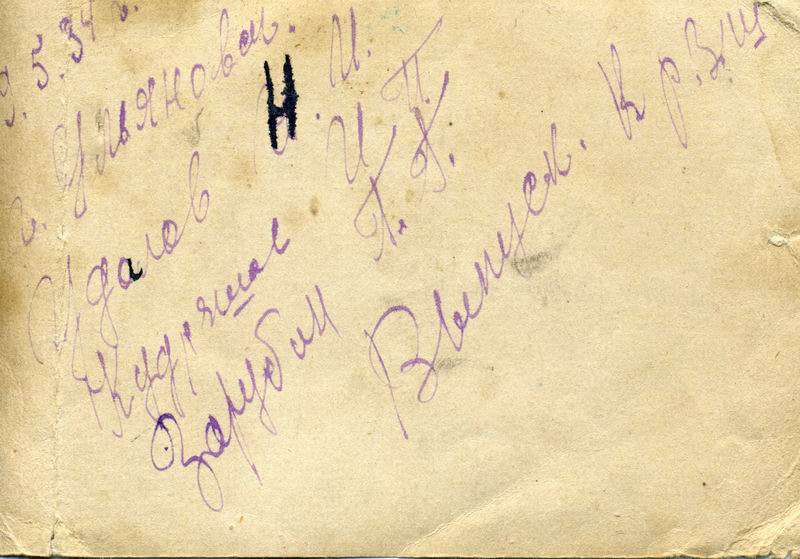 9.5.34 г.
г. Ульяновск.
Удалов Н. И.
Кудряшов И. П.
Зарубин П. П.
Выпуск. К р.В.Ш